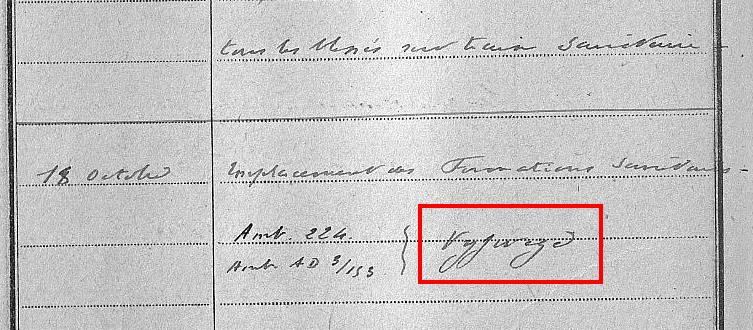 tous les blessés sur train sanitaire -
18 Octobre Emplacement des Formations Sanitaires -
Amb. 224
Amb AD 3/153